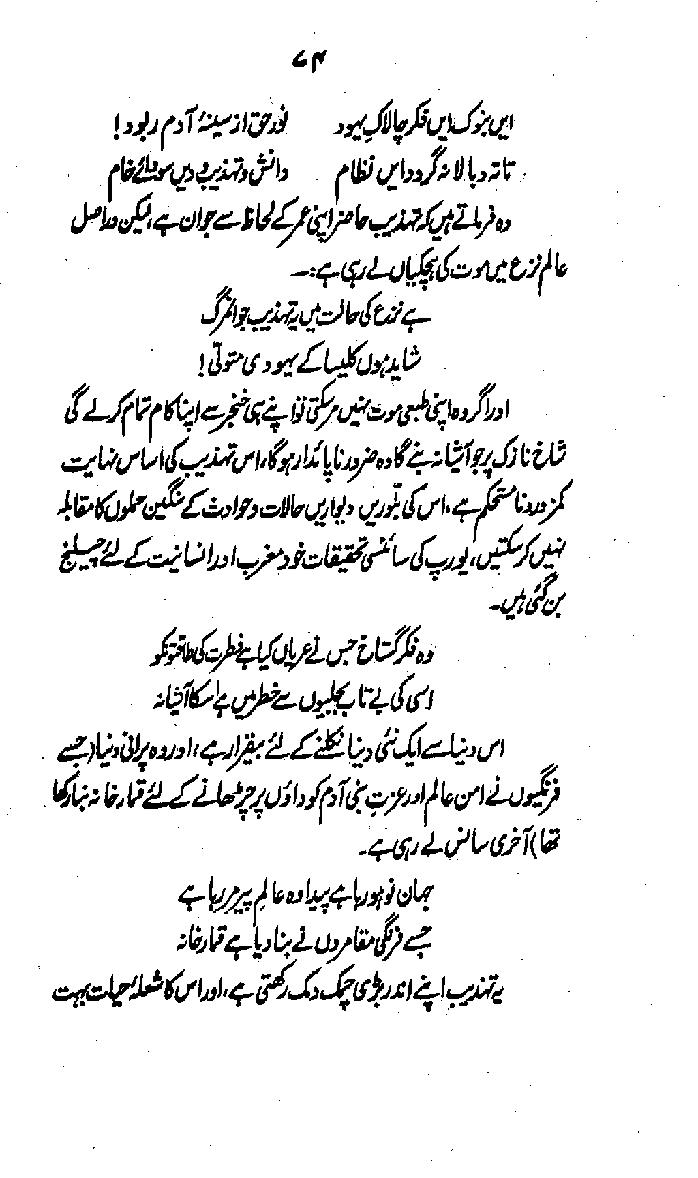 ۷۴
ایں بنوک ایں فکر چالاک یہود نور حق از سینۂ آدم ربود!
تا تہ و بالا نہ گردد ایں نظام دانش و تہذیب و دیں سودائے خام
وہ فرماتے ہیں کہ تہذیب حاضر اپنی عمر کے لحاظ سے جوان ہے، لیکن دراصل
عالم نزع میں موت کی ہچکیاں لے رہی ہے:۔
ہے نزع کی حالت میں یہ تہذیب جوانمرگ
شاید ہوں کلیسا کے یہودی متولی!
اور اگر وہ اپنی طبعی موت نہیں مرسکتی تو اپنے ہی خنجر سے اپنا کام تمام کرلے گی
شاخ نازک پر جو آشیانہ بنے گا وہ ضرور ناپائدار ہوگا، اس تہذیب کی اساس نہایت
کمزور و نا مستحکم ہے، اس کی بلوریں دیواریں حالات و حوادث کے سنگین حملوں کا مقابلہ
نہیں کرسکتیں، یورپ کی سائنسی تحقیقات خود مغرب اور انسانیت کے لئے چیلنج
بن گئی ہیں۔
وہ فکر گستاخ جس نے عریاں کیا ہے فطرت کی طاقتونکو
اسی کی بے تاب بجلیوں سے خطر میں ہے اسکا آشیانہ
اس دنیا سے ایک نئی دنیا نکلنے کے لئے بیقرار ہے، اور وہ پرانی دنیا (جسے
فرنگیوں نے امن عالم اور عزت بنی آدم کو داؤں پر چڑھانے کے لئے قمار خانہ بنا رکھا
تھا) آخری سانس لے رہی ہے۔
جہان نو ہورہا ہے پیدا وہ عالم پیر مر رہا ہے
جسے فرنگی مقامروں نے بنا دیا ہے قمار خانہ
یہ تہذیب اپنے اندر بڑی چمک دمک رکھتی ہے، اور اس کا شعلۂ حیات بہت